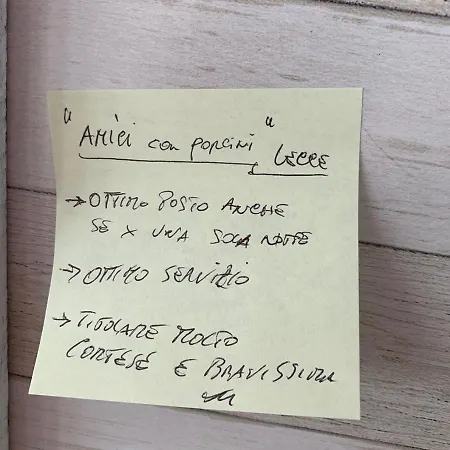 "Amici con porcini" LECCE
→ OTTIMO POSTO ANCHE
SE X UNA SOLA NOTTE
→ OTTIMO SERVIZIO
→ TITOLARE MOLTO
CORTESE E BRAVISSIMA